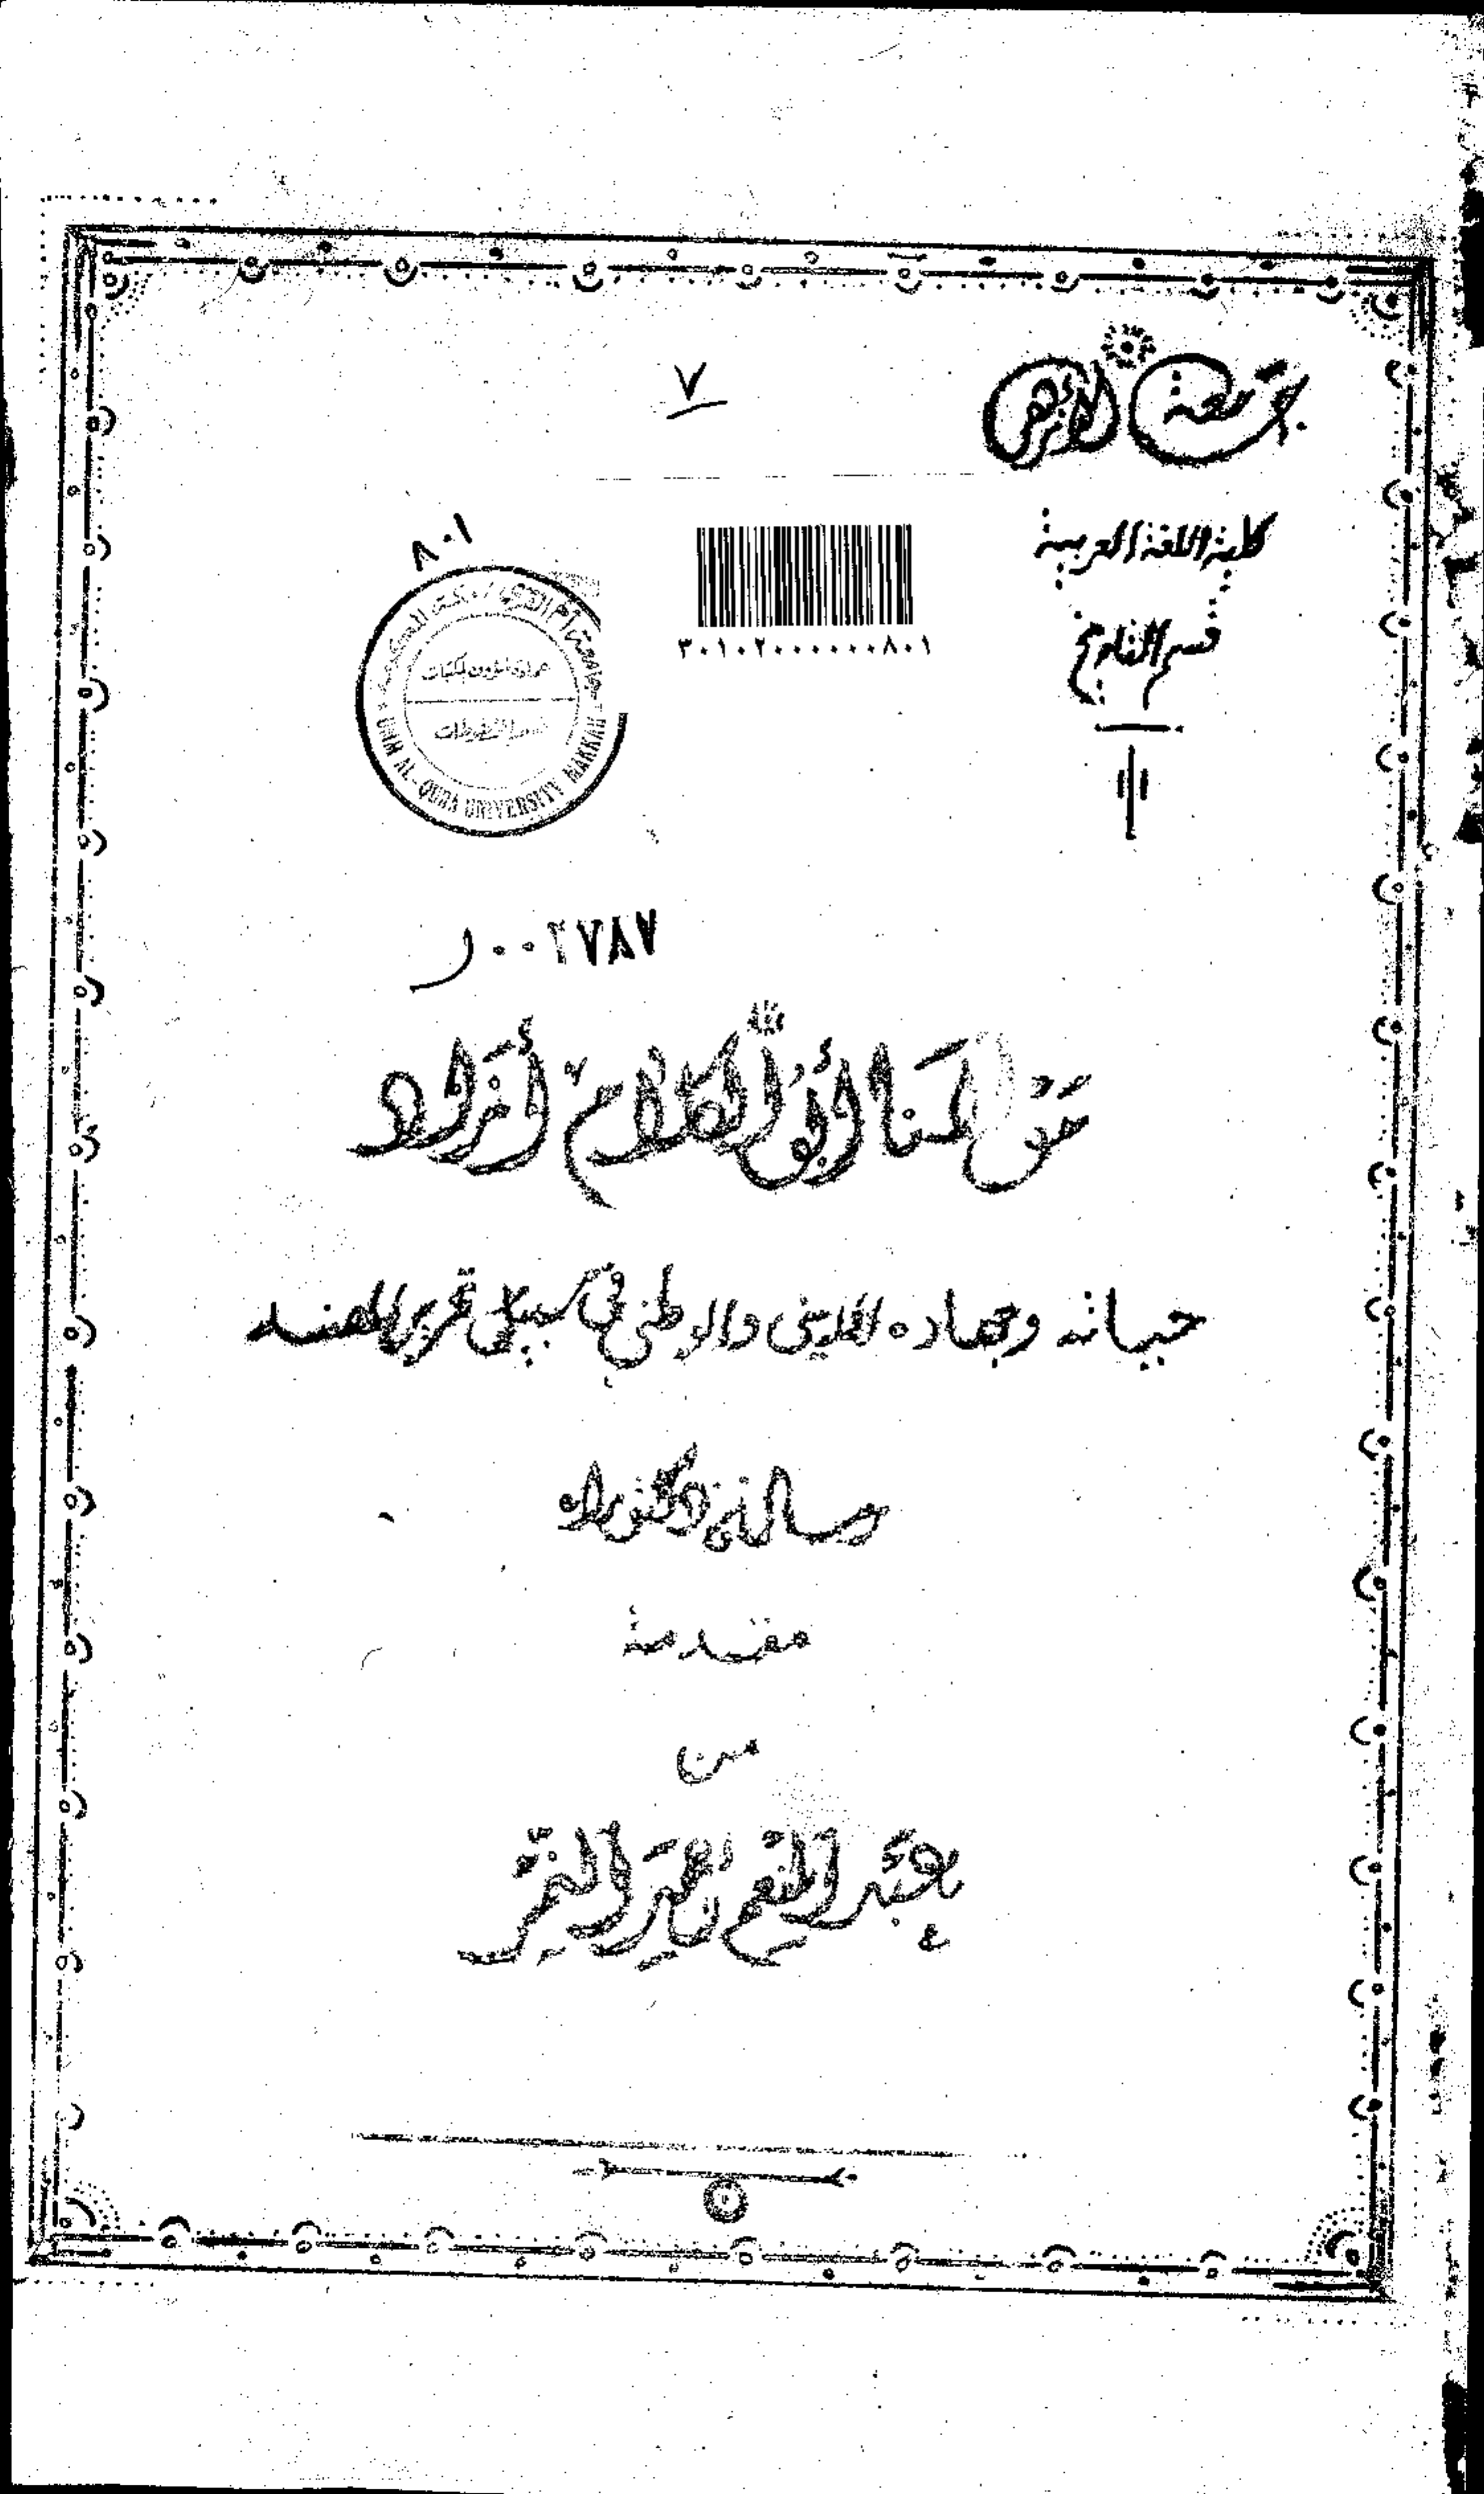 جامعة الأزهر
٧
كلية اللغة العربية
قسم التاريخ
٨٠١
٣٠١٠٢٠٠٠٠٠٠٨٠١
جامعة أم القرى / مكة المكرمة
عمادة شؤون المكتبات
قسم المخطوطات
UMM AL-QURA UNIVERSITY MAKKAH
٠٠٢٧٨٧ر
مولانا أبو الكلام أزاد
حياته وجهاده الديني والوطني في سبيل تحرير الهند
رسالة دكتوراه
مقدمة
من
عبد المنعم النمر